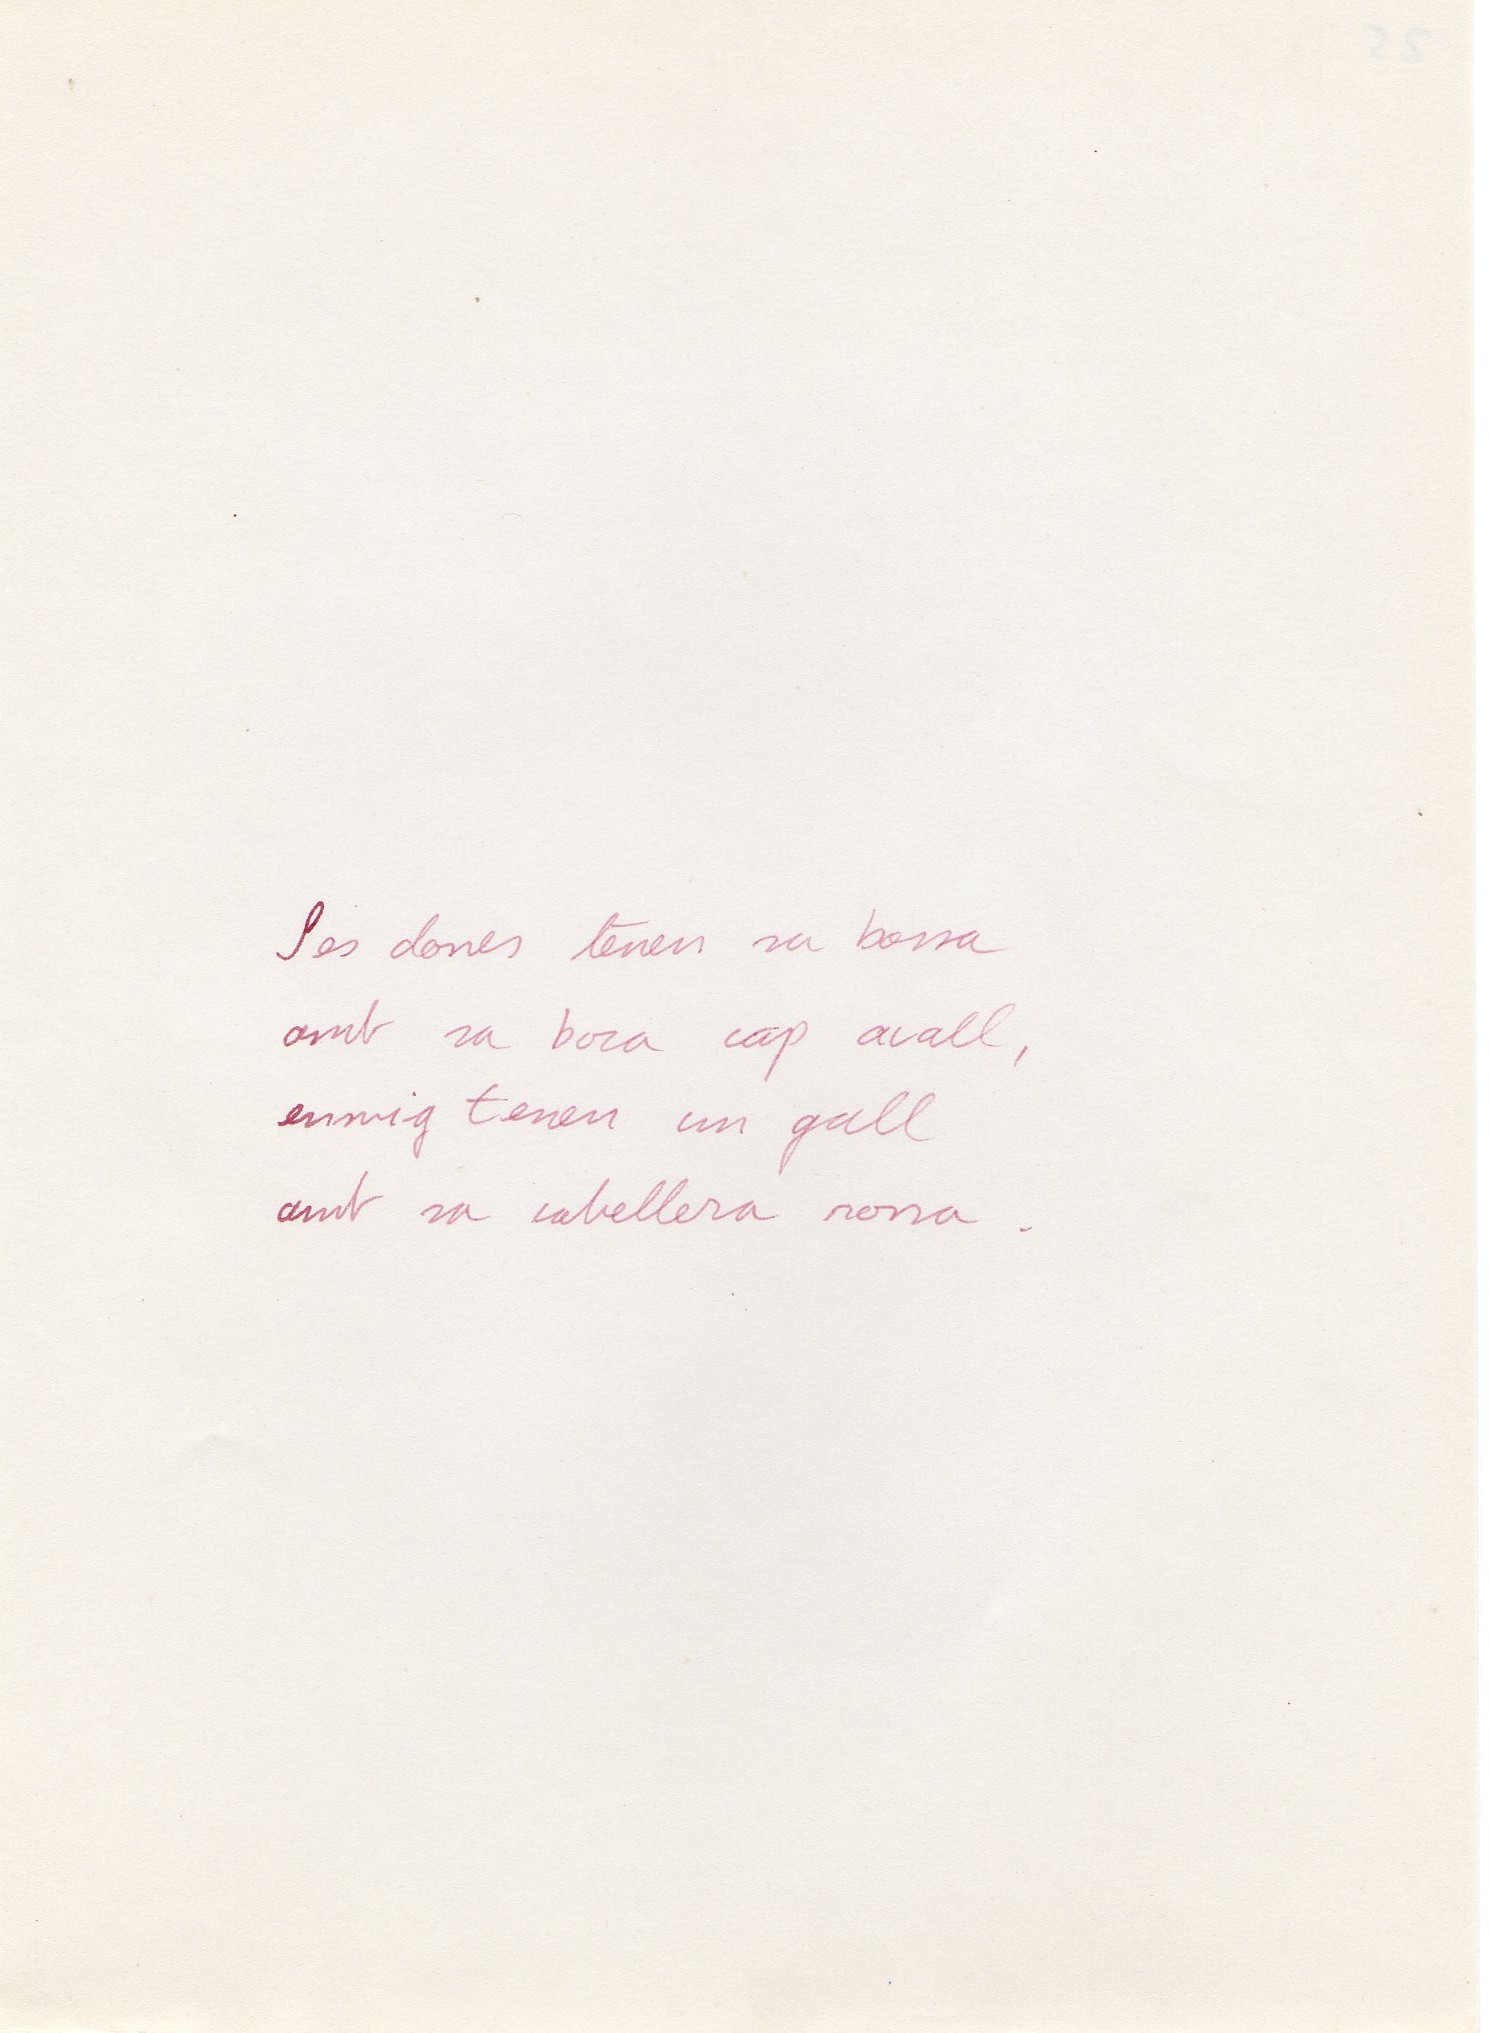 Ses dones tenen sa bossa
amb sa boca cap avall,
enmig tenen un gall
amb sa cabellera rossa.